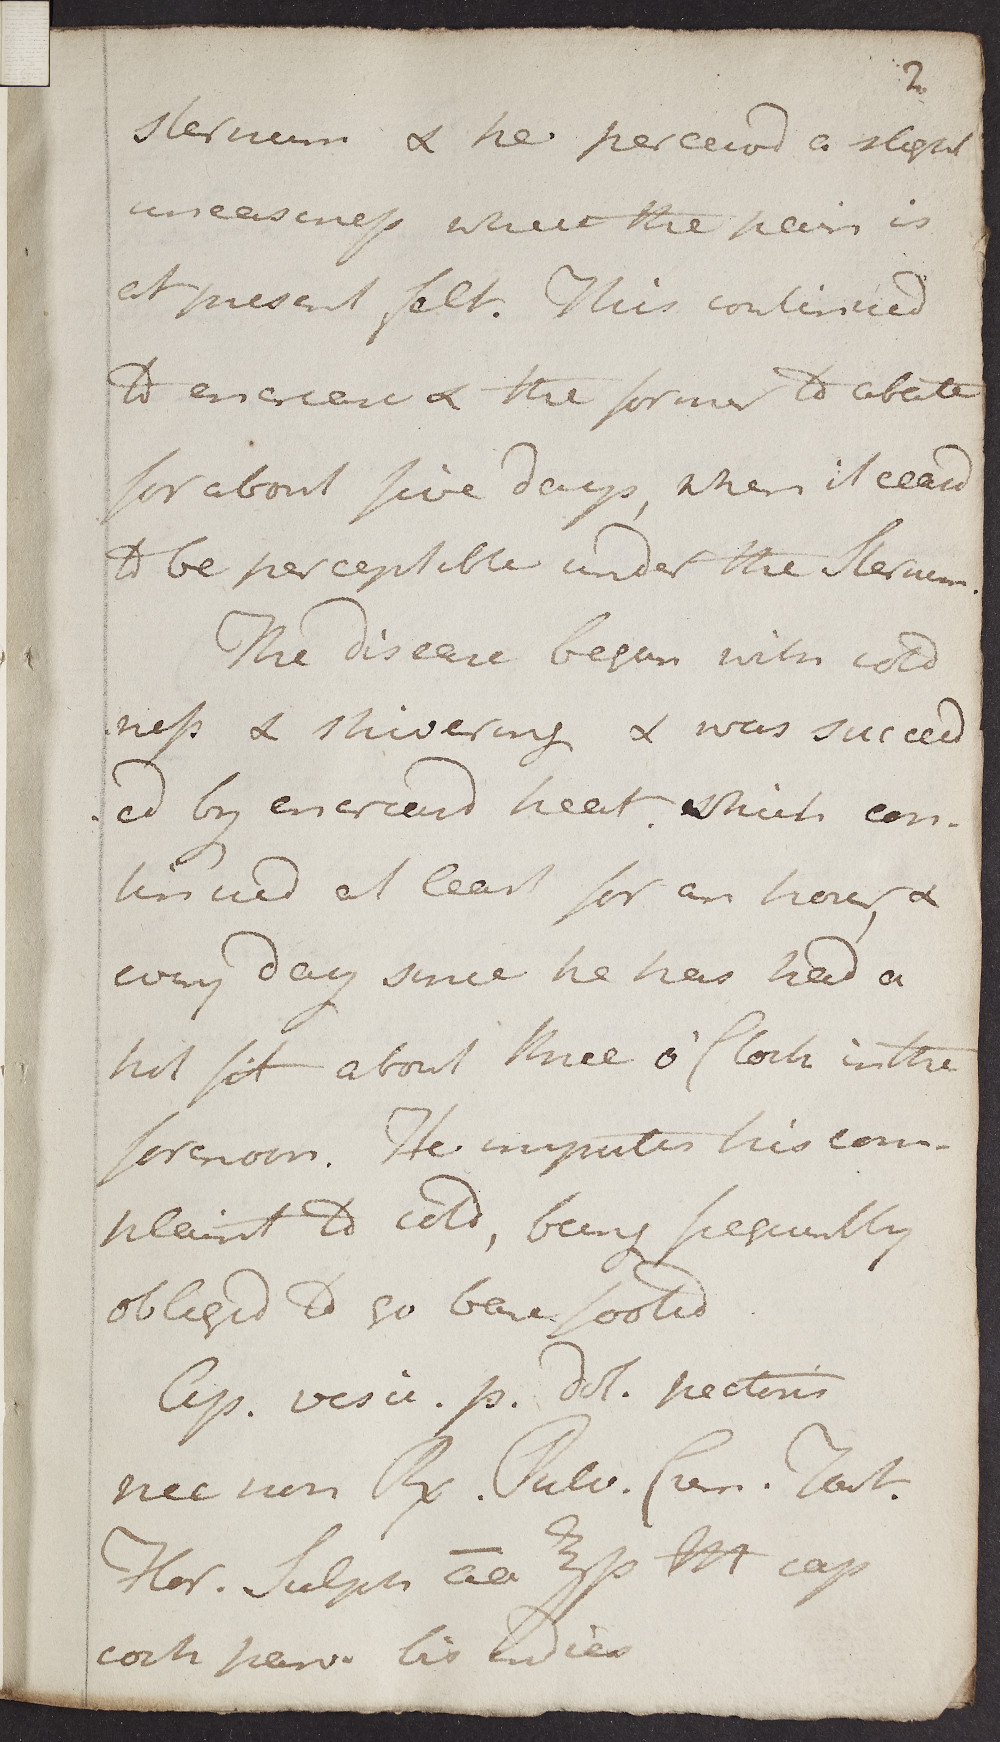 2
sternum & he perceivd a slight
uneasiness where the pain is
at present felt. This continued
to encrease & the former to abate
for about five days, when it ceasd
to be perceptible under the Sternum.
The disease began with cold
ness & shivering & was succeed
ed by encreasd heat. which con-
tinued at least for an hour, &
every day since he has had a
hot fit about three o'Clock in the
forenoon. He imputes his com-
plaint to cold, being frequently
obliged to go bare footed
Ap. vesic. p. dol. pectoris
nec non Rx. Pulv. Crem. Tart.
Flor. Sulph āa ℥ß M cap
coch parv. bis indies